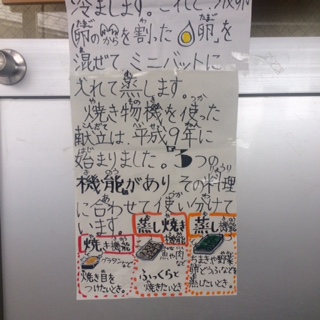 冷まします。これと、液卵
(卵の殻を割った卵)を
混ぜて ミニバットに
入れて蒸します。
焼き物機を使った
献立は、平成9年に
始まりました。3つの
機能があり その料理
に合わせて使い分けて
います。
焼き機能
グラタンなど
焼き目を
つけたいとき。
蒸し焼き
機能
魚や肉など
ふっくらと
焼きたいとき
蒸し機能
ちまきや野菜
卵どうふなどを
蒸したいとき。